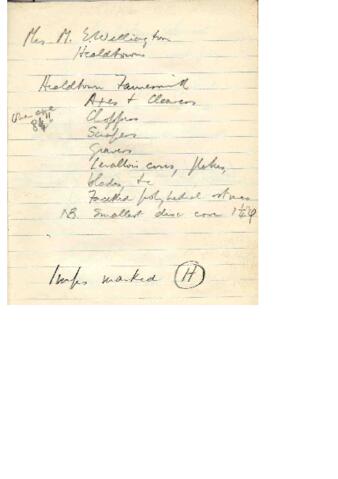 Mrs M. E. Wellington
Healdtown
Healdtown Fauresmith
Axes + Cleavers
One axe
8¼"
Choppers
Scrapers
Gravers
Levallois cores, flakes,
blades, &c
Faceted polyhedral
NB. Smallest disc core 1½" φ
Imps marked (H)